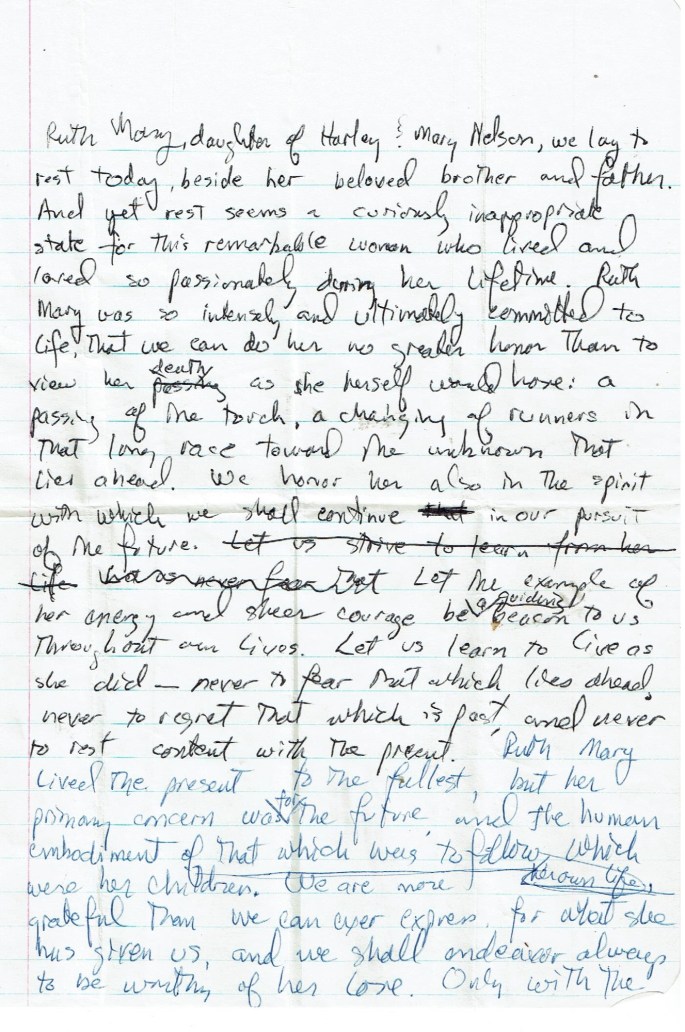 Ruth Mary, daughter of Harley & Mary Nelson, we lay to
rest today, beside her beloved brother and father.
And yet rest seems a curiously inappropriate
state for this remarkable woman who lived and
loved so passionately during her lifetime. Ruth
Mary was so intensely and ultimately committed to
life, that we can do her no greater honor than to
death
view her passing as she herself would have: a
passing of the torch, a changing of runners in
that long race toward the unknown that
lies ahead. We honor her also in the spirit
with which we shall continue that in our pursuit
of the future. Let us strive to learn from her
life Let us never fear that Let the example of
a guiding
her energy and sheer courage be beacon to us
throughout our lives. Let us learn to live as
she did — never to fear that which lies ahead,
never to regret that which is past, and never
to rest content with the present. Ruth Mary
lived the present to the fullest, but her
for
primary concern was the future, and the human
embodiment of that which was to follow, which
were her children. We are more her own life,
grateful than we can ever express, for what she
has given us, and we shall endeavor always
to be worthy of her love. Only with the